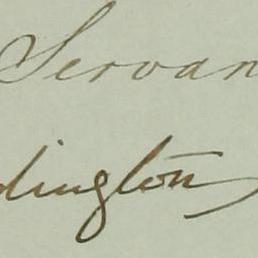 Servan
dington